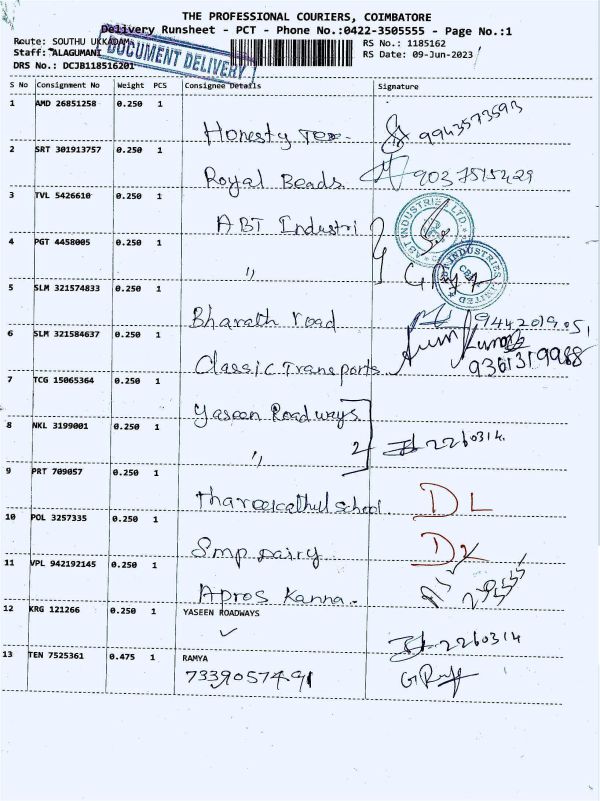 THE PROFESSIONAL COURIERS, COIMBATORE
Delivery Runsheet - PCT - Phone No.:0422-3505555 - Page No.:1
Route: SOUTHU UKKADAM
RS No.: 1185162
Staff: ALAGUMANI
DOCUMENT DELIVERY
RS Date: 09-Jun-2023
DRS No.: DCJB118516201
S No Consignment No Weight PCS Consignee Details Signature
1 AMD 26851258 0.250 1
Honesty Tex- 9943573593
2 SRT 301913757 0.250 1
Royal Beads 9037515429
3 TVL 5426610 0.250 1
ABT Industri
ABT INDUSTRIES LTD
4 PGT 4458005 0.250 1
"
INDUSTRIES LIMITED
5 SLM 321574833 0.250 1
Bharath road 9442019051
6 SLM 321584637 0.250 1
Classic Transports Arun Kumar
9361319988
7 TCG 15065364 0.250 1
Yaseen Roadways
8 NKL 3199001 0.250 1
" 2 2260314
9 PRT 709057 0.250 1
school DL
10 POL 3257335 0.250 1
Smp Dairy DL
11 VPL 942192145 0.250 1
Apros Kanna-
12 KRG 121266 0.250 1 YASEEN ROADWAYS
2260314
13 TEN 7525361 0.475 1 RAMYA
7339057491